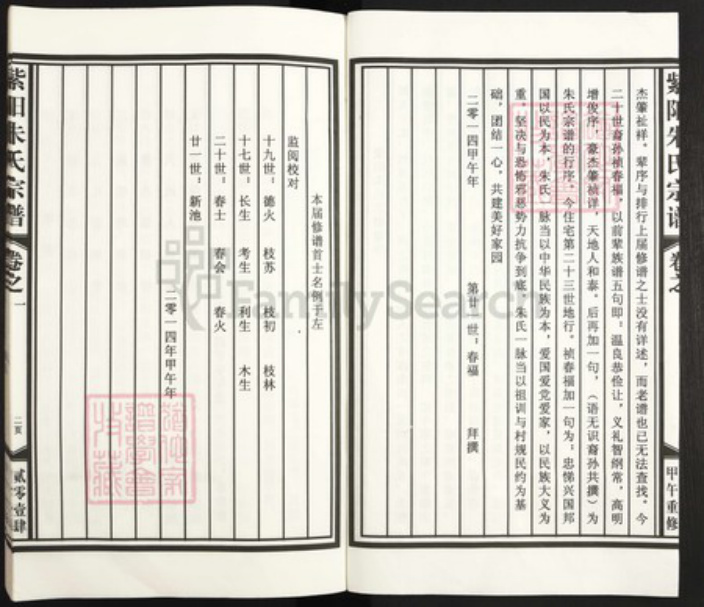 紫阳朱氏宗谱
卷之
甲午重修
杰肇祉祥。辈序与排行上届修谱之士没有详述，而老谱也已无法查找。今
二十世裔孙祯春福，以前辈族谱五句即：温良恭俭让，义礼智纲常，高明
增俊序，豪杰肇祯详，天地人和泰。后再加一句，（语无识裔孙共撰）为
朱氏宗谱的行序。今住宅第二十三世地行。祯春福加一句为：忠悌兴国邦
国以民为本，朱氏一脉当以中华民族为本，爱国爱党爱家，以民族大义为
重，坚决与恐怖邪恶势力抗争到底。朱氏一脉当以祖训与村规民约为基
础，团结一心，共建美好家园
二零一四甲午年　第廿一世：春福　拜撰
本届修谱首士名例于左
监阅校对
十九世：德火　枝苏　枝初　枝林
十七世：长生　考生　利生　木生
二十世：春士　春会　春火
廿一世：新池
二零一四年甲午年
紫阳朱氏宗谱
卷之一
二页
贰零壹肆
FamilySearch